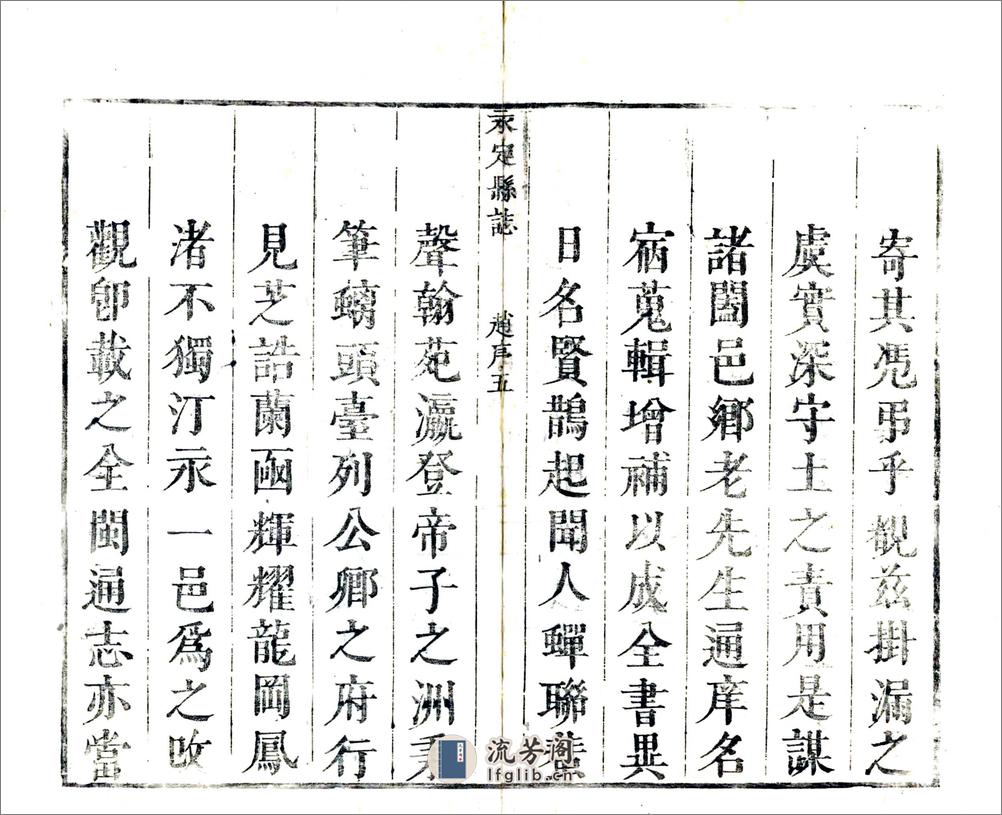 寄其凴弔乎覩兹掛漏之
虞實深守土之責用是謀
諸闔邑鄉老先生通庠名
宿蒐輯增補以成全書異
日名賢鵲起聞人蟬聯蜚
永定縣誌 趙序五
聲翰苑瀛登帝子之洲秉
筆螭頭臺列公卿之府行
見芝誥蘭函輝耀龍岡鳳
渚不獨汀永一邑爲之改
觀卽載之全閩通志亦當
流芳阁
lfglib.cn